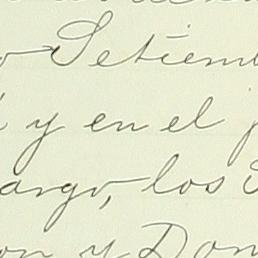 Setiem
y en el
argo, los
on y Don